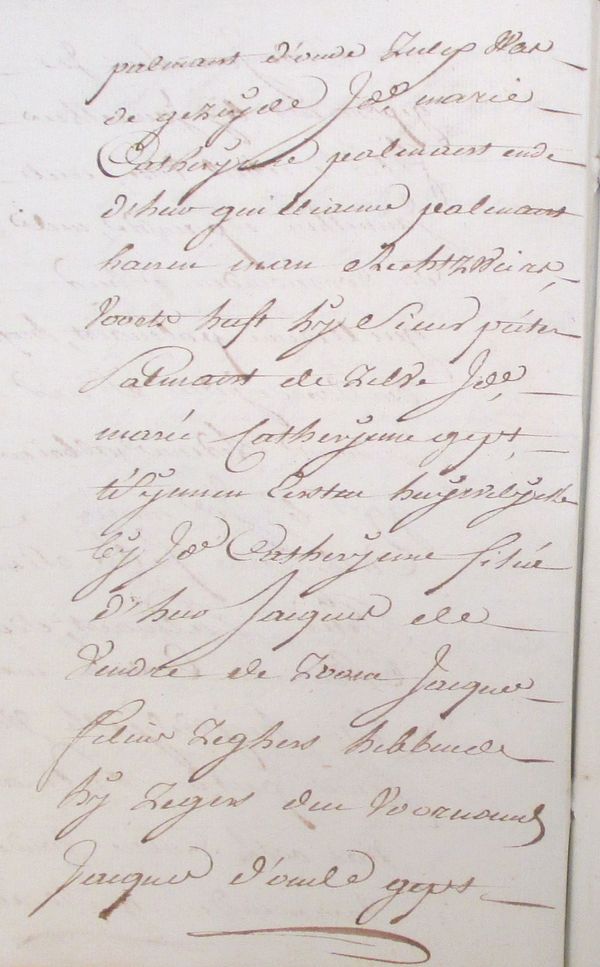 palmant d'oude Zulix
de gezeijde Joe. marie
Catherijnne palmaert ende
d'heer guilliaeme palmant
haeren man
voorts heeft hij Sieur pieter
Palmaert de zelve Joe.
marie Catherijnne gept.
t'sijnnen Eersten huijwelijcke
bij Joe. Catherijnne filia
d'heer Jacques de
Vendre de Zoone Jacques
filius Zeghers hebbende
hij Zegers den Voornoemd
Jacques d'oude gept.